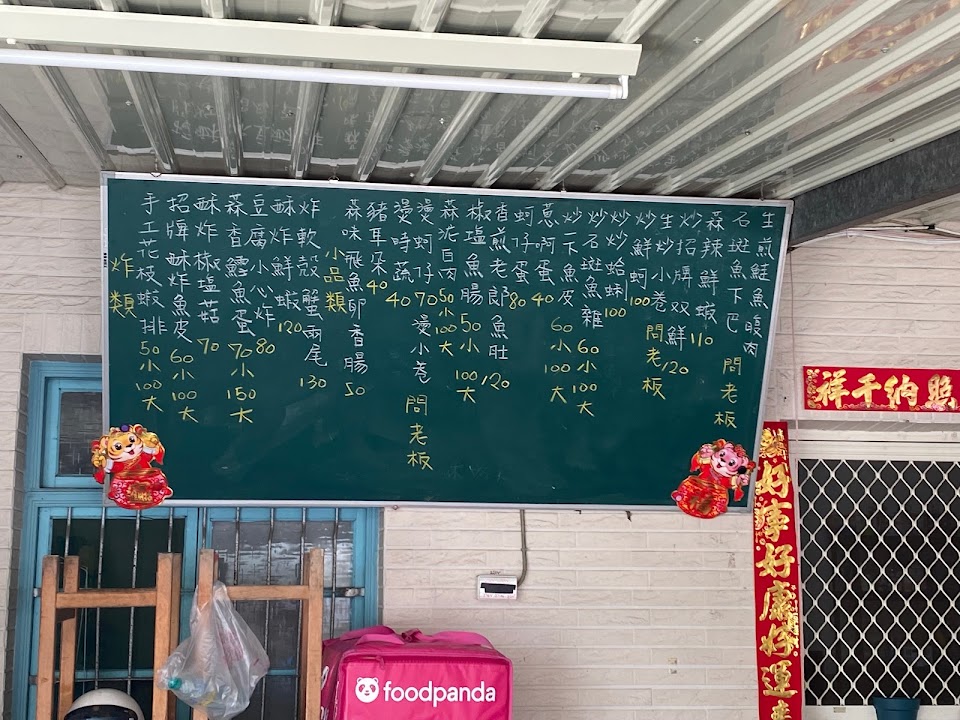 生煎鮭魚腹肉
石斑魚下巴 問老板
蒜辣鮮蝦 110
炒招牌双鮮 120
生炒小卷 問老板
炒鮮蚵 100
炒炒蛤蜊 100
炒石斑魚雜 60小 100大
炒下魚皮 60小 100大
蔥啊蛋 40
蚵仔蛋 80
香煎老郎魚肚 120
椒塩魚腸 50小 100大
蒜泥白肉 50小 100大
燙蚵仔 70
燙小卷 問老板
燙時蔬 40
豬耳朵 40
蒜味飛魚卵香腸 50
小品類
炸軟殼蟹兩尾 130
酥炸鮮蝦 120
豆腐小心炸 80
蒜香鱈魚蛋 70小 150大
酥炸椒塩菇 70
招牌酥炸魚皮 60小 100大
手工花枝蝦排 50小 100大
炸類
祥千納照
好事好康好運
foodpanda